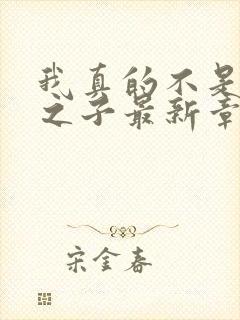 我真的不是
之子最新章
宋金春